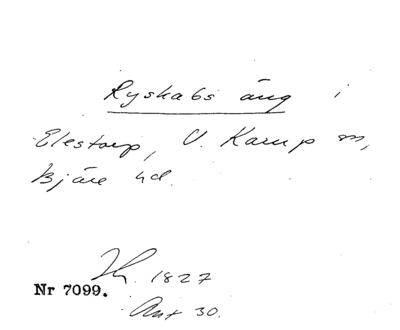 Ryskabs äng i
Elestorp, V. Karup sn,
Bjäre hd.
Th. 1827
Nr 7099.
Ant 30.